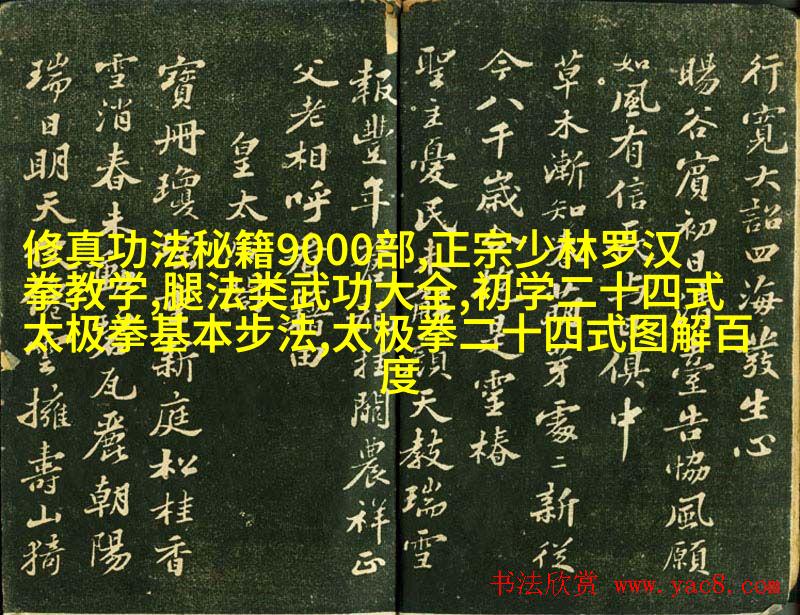 修真功法秘籍9000部,正宗少林罗汉
拳教学,腿法类武功大全,初学二十四式
太极拳基本步法,太极拳二十四式图解百
度
行寬大詔四海發生心
暘谷賓初日清臺告協風願
如風有信長與日俱中
草木漸知春萌芽處〻新從
今八千歲合抱是靈椿
聖主憂民未解顏天教瑞雪
報豐年挂闕農祥正
父老相呼看藉田
皇太
寶冊瓊新庭松桂香
雪消春未碧瓦麗朝陽
瑞日明天擁壽山猗
书法欣赏 www.yac8.com